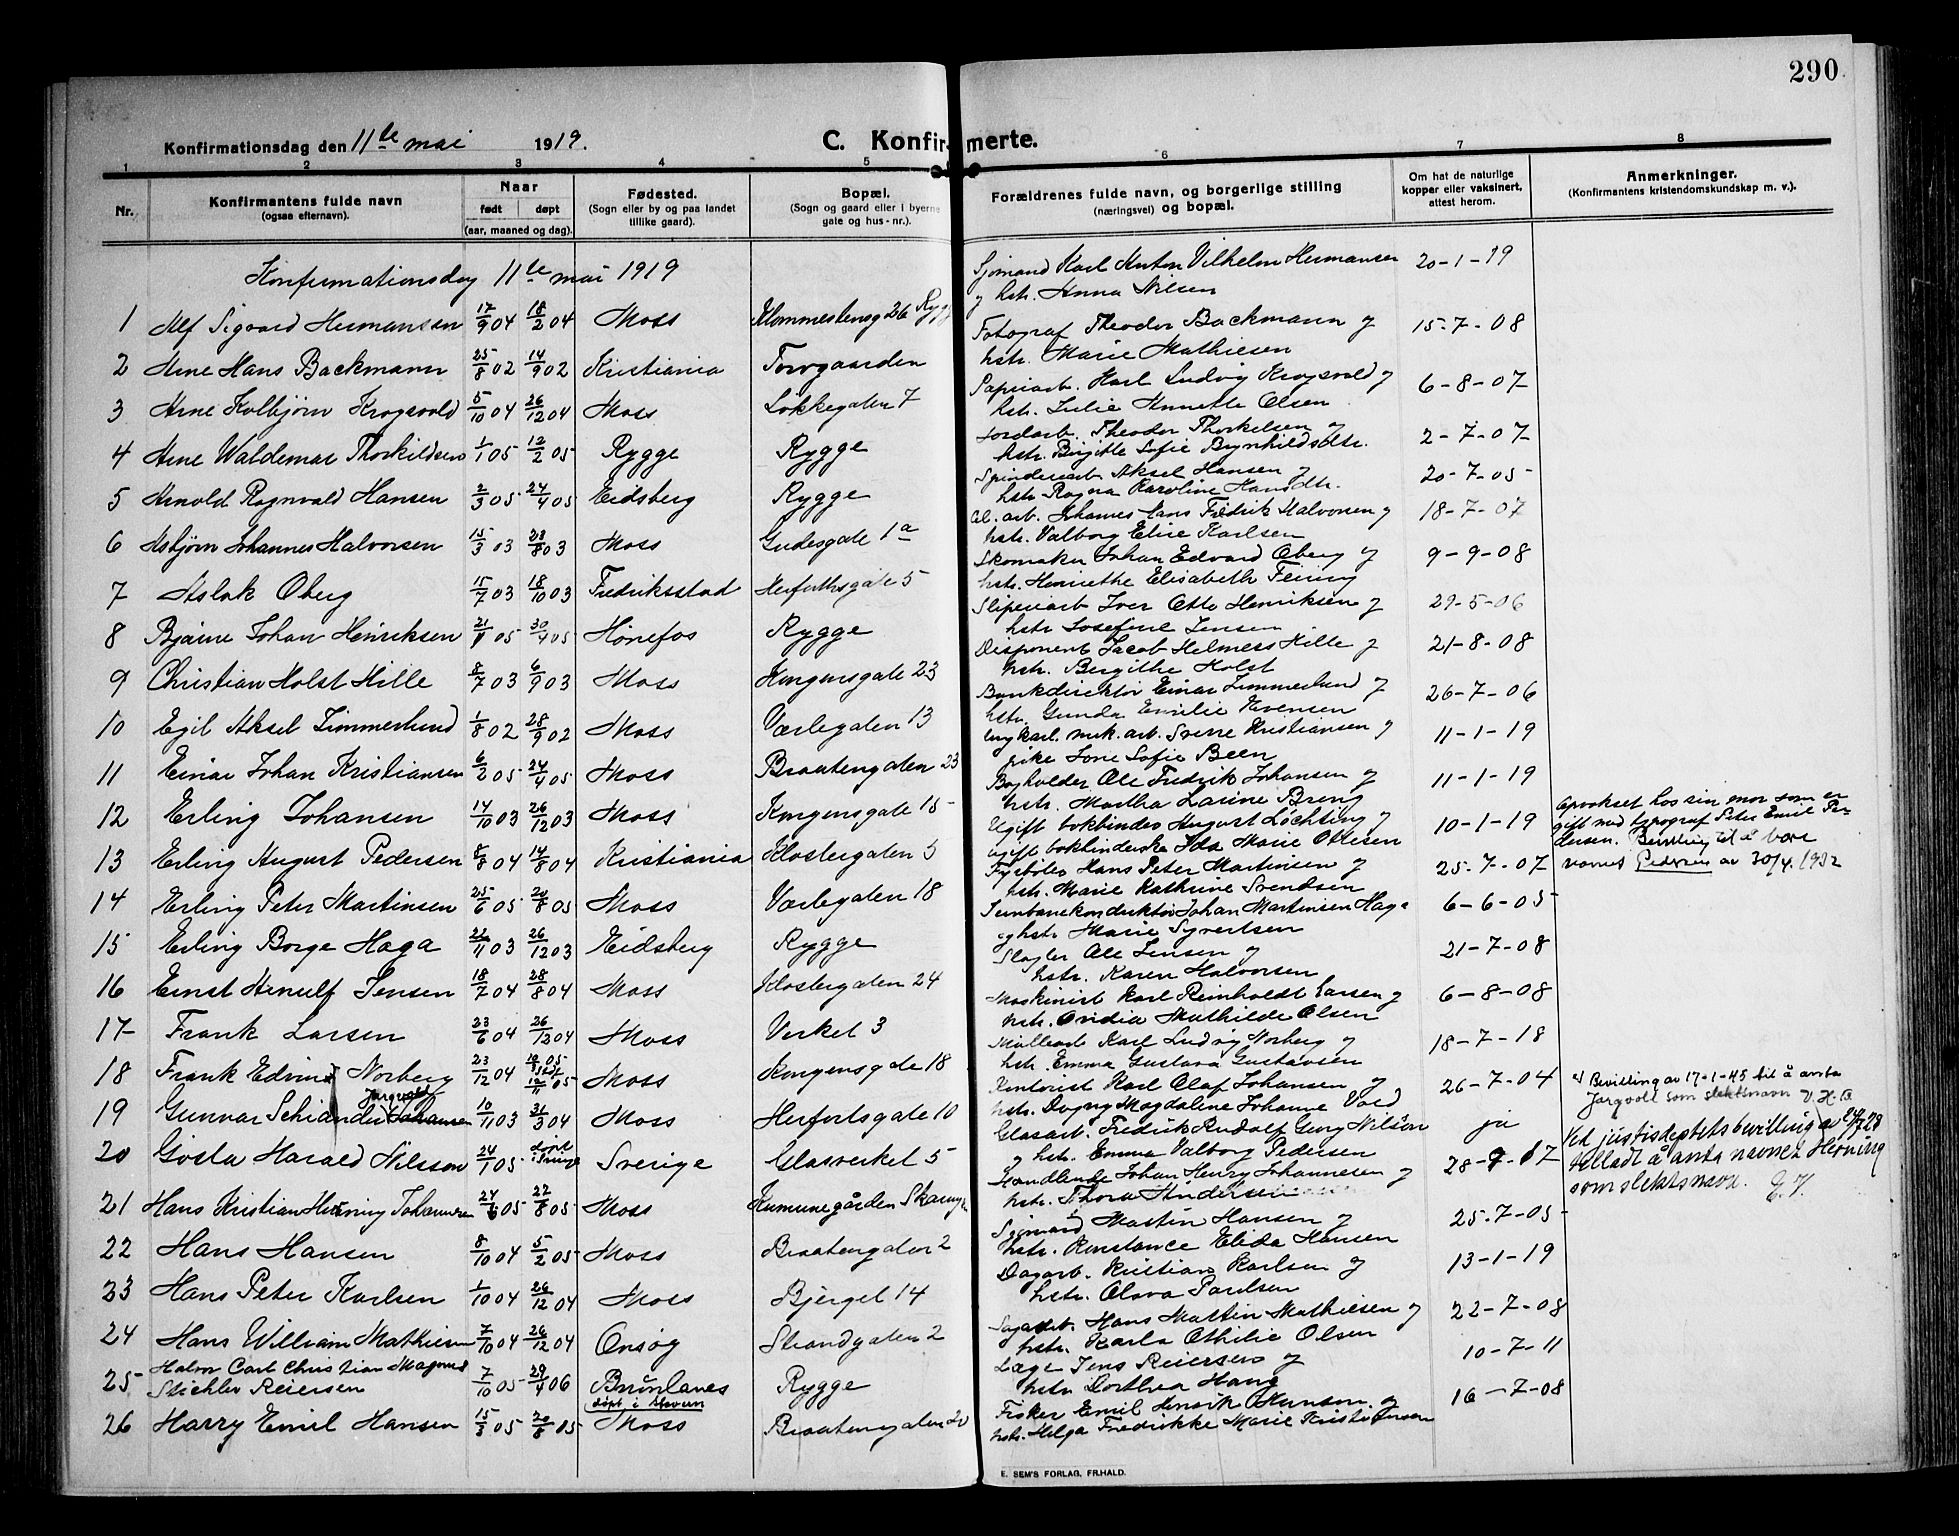 290
Konfirmationsdag den 11te mai 1919.
C. Konfirmerte.
1 2 3 4 5 6 7 8
Nr.
Konfirmantens fulde navn
(ogsaa efternavn).
Naar
født døpt
(aar, maaned og dag).
Fødested.
(Sogn eller by og paa landet
tillike gaard).
Bopæl.
(Sogn og gaard eller i byerne
gate og hus-nr.).
Forældrenes fulde navn, og borgerlige stilling
(næringsvei) og bopæl.
Om hat de naturlige
kopper eller vaksinert,
attest herom.
Anmerkninger.
(Konfirmantens kristendomskundskap m. v.).
Konfirmationsdag 11te mai 1919
1 Alf Sigvard Hermansen 17/9 04 18/2 04 Moss Klommestensg 26 Rygge
Sjømand Karl Anton Vilhelm Hermansen 20-1-19
og hstr. Anna Nilsen
2 Arne Hans Backmann 25/8 02 14/9 02 Kristiania Torvgaarden
Fotograf Theodor Backmann og 15-7-08
hstr. Marie Mathiesen
3 Arne Kolbjørn Krogsvold 5/10 04 26/12 04 Moss Løkkegaten 7
Papirarb. Karl Ludvig Krogsvold og 6-8-07
hstr. Julie Annette Olsen
4 Arne Waldemar Thorkildsen 1/1 05 12/2 05 Rygge Rygge
Jordarb. Theodor Thorkelsen og 2-7-07
hstr. Birgitte Sofie Brynhildsdtr.
5 Arnold Ragnvald Hansen 2/3 05 24/4 05 Eidsberg Rygge
Spinderiarb Aksel Hansen og 20-7-05
hstr Ragna Karoline Hansdtr.
6 Asbjørn Johannes Halvorsen 15/3 03 23/8 03 Moss Gudesgate 1a
Gl. arb. Johannes Hans Fredrik Halvorsen og 18-7-07
hstr. Valborg Elise Karlsen
7 Aslak Oberg 15/7 03 18/10 03 Fredriksstad Herforthsgate 5
Skomaker Johan Edvard Oberg og 9-9-08
hstr. Henriethe Elisabeth Feiring
8 Bjarne Johan Henriksen 21/1 05 30/4 05 Hønefos Rygge
Sliperiarb Iver Otto Henriksen og 29-5-06
hstr Josefine Jensen
9 Christian Holst Hille 8/7 03 6/9 03 Moss Kongensgate 23
Disponent Jacob Helmers Hille og 21-8-08
hstr. Bergithe Holst
10 Egil Aksel Zimmerlund 1/8 02 28/9 02 Moss Værlegaten 13
Bankdirektør Einar Zimmerlund og 26-7-06
hstr. Gunda Emilie Evensen
11 Einar Johan Kristiansen 6/2 05 24/4 05 Moss Braatengaten 23
Ungkarl. mek. arb. Sverre Kristiansen og 11-1-19
pike Lone Sofie Been
12 Erling Johansen 14/10 03 26/12 03 Moss Kongensgate 15
Bogholder Ole Fredrik Johansen og 11-1-19
hstr. Martha Larine Breng
13 Erling August Pedersen 8/8 04 14/8 04 Kristiania Klostergaten 5
Ugift bokbinder August Løchting og 10-1-19
ugift bokbinderske Ida Marie Ottesen
Opvokset hos sin mor som er
gift med typograf Peter Emil Pe-
dersen. Bevilling til å bære
navnet Pedersen av 20/4. 1932
14 Erling Peter Martinsen 25/6 05 20/8 05 Moss Værlegaten 18
Fyrbøter Hans Peter Martinsen og 25-7-07
hstr. Marie Kathrine Svendsen
15 Erling Borge Haga 22/11 03 26/12 03 Eidsberg Rygge
Jernbanekonduktør Johan Martinsen Haga 6-6-05
og hstr. Marie Syvertsen
16 Ernst Arnulf Jensen 18/7 04 28/8 04 Moss Klostergaten 24
Slagter Ole Jensen og 21-7-08
hstr. Karen Halvorsen
17 Frank Larsen 23/6 04 26/12 04 Moss Verket 3
Maskinist Karl Reinholdt Larsen og 6-8-08
hstr. Ovidia Mathilde Olsen
18 Frank Edvind Norberg 23/12 04 Moss Kongensgate 18
Møllearb Karl Ludvig Norberg og 18-7-18
hstr. Emma Gustava Gustavsen
19 Gunnar Schiander Johansen Jargvoll 10/11 03 31/3 04 Moss Herfortsgate 10
Kontorist Karl Olaf Johansen og 26-7-04
hstr. Dagny Magdalene Johanne Vold
Bevilling av 17-1-45 til å anta
Jargvoll som slektsnavn
20 Gösta Harald Nilsson 24/1 05 døpt i Sverige Sverige Glasverket 5
Glasarb. Fredrik Rudolf Georg Nilsson ja
og hstr. Emma Valborg Pedersen
21 Hans Kristian Herning Johannesen 24/6 05 27/8 05 Moss Kumunegården Skarmyra
Handlende Johan Henry Johannesen og 28-9-17
hstr. Thora Andersen
Ved justisdeptets bevilling
tilladt å anta navnet Herning
som slektsnavn.
22 Hans Hansen 8/10 04 5/2 05 Moss Braatengaten 2
Sjømand Martin Hansen og 25-7-05
hstr. Konstance Elida Hansen
23 Hans Peter Karlsen 1/10 04 26/12 04 Moss Bjerget 14
Dagarb. Kristian Karlsen og 13-1-19
hstr. Olava Paulsen
24 Hans William Mathiesen 7/10 04 26/12 04 Onsøy Strandgaten 2
Sagarb. Hans Martin Mathiesen og 22-7-08
hstr. Karla Othilie Olsen
25 Halvor Carl Christian Magnus
Stickler Reiersen 7/10 05 29/4 06 Brunlanes døpt i Stavern Rygge
Læge Jens Reiersen og 10-7-11
hstr Dorthea Haug
26 Harry Emil Hansen 15/3 05 20/8 05 Moss Braatengaten 20
Fisker Emil Henrik Hansen og 16-7-08
hstr. Helga Fredrikke Marie Kristoffersen
E. SEM'S FORLAG, FR.HALD.